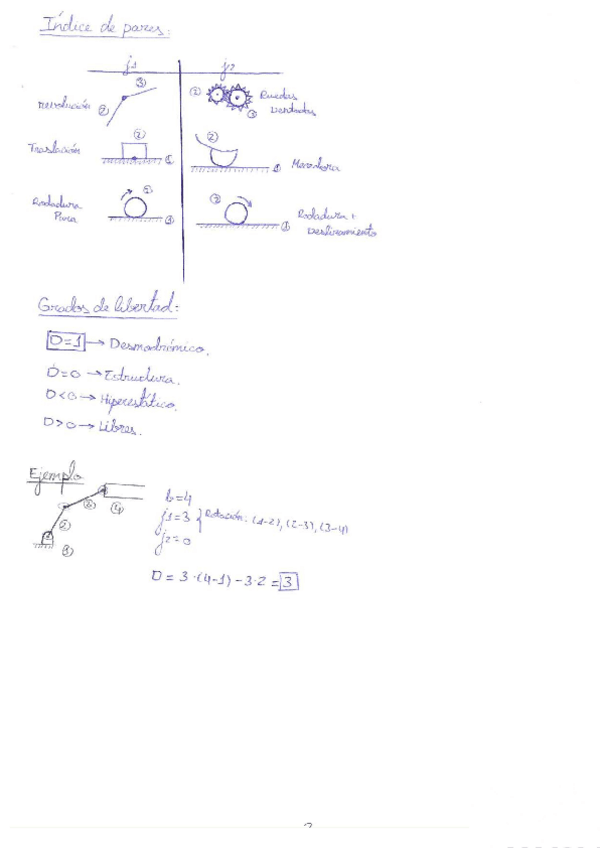 Índice de pares:
j1 j2
Revolución ② ③ ② ③ Ruedas Dentadas
Traslación ② ① ② ① Mecanismo
Rodadura Pura ② ① ② ① Rodadura + Deslizamiento
Grados de libertad:
D=1 → Desmodrómico.
D=0 → Estructura.
D<0 → Hiperestático.
D>0 → Libres.
Ejemplo
② ③ ④ ①
b=4
j1=3 } Rotación: (1-2), (2-3), (3-4)
j2=0
D = 3·(4-1) - 3·2 = 3